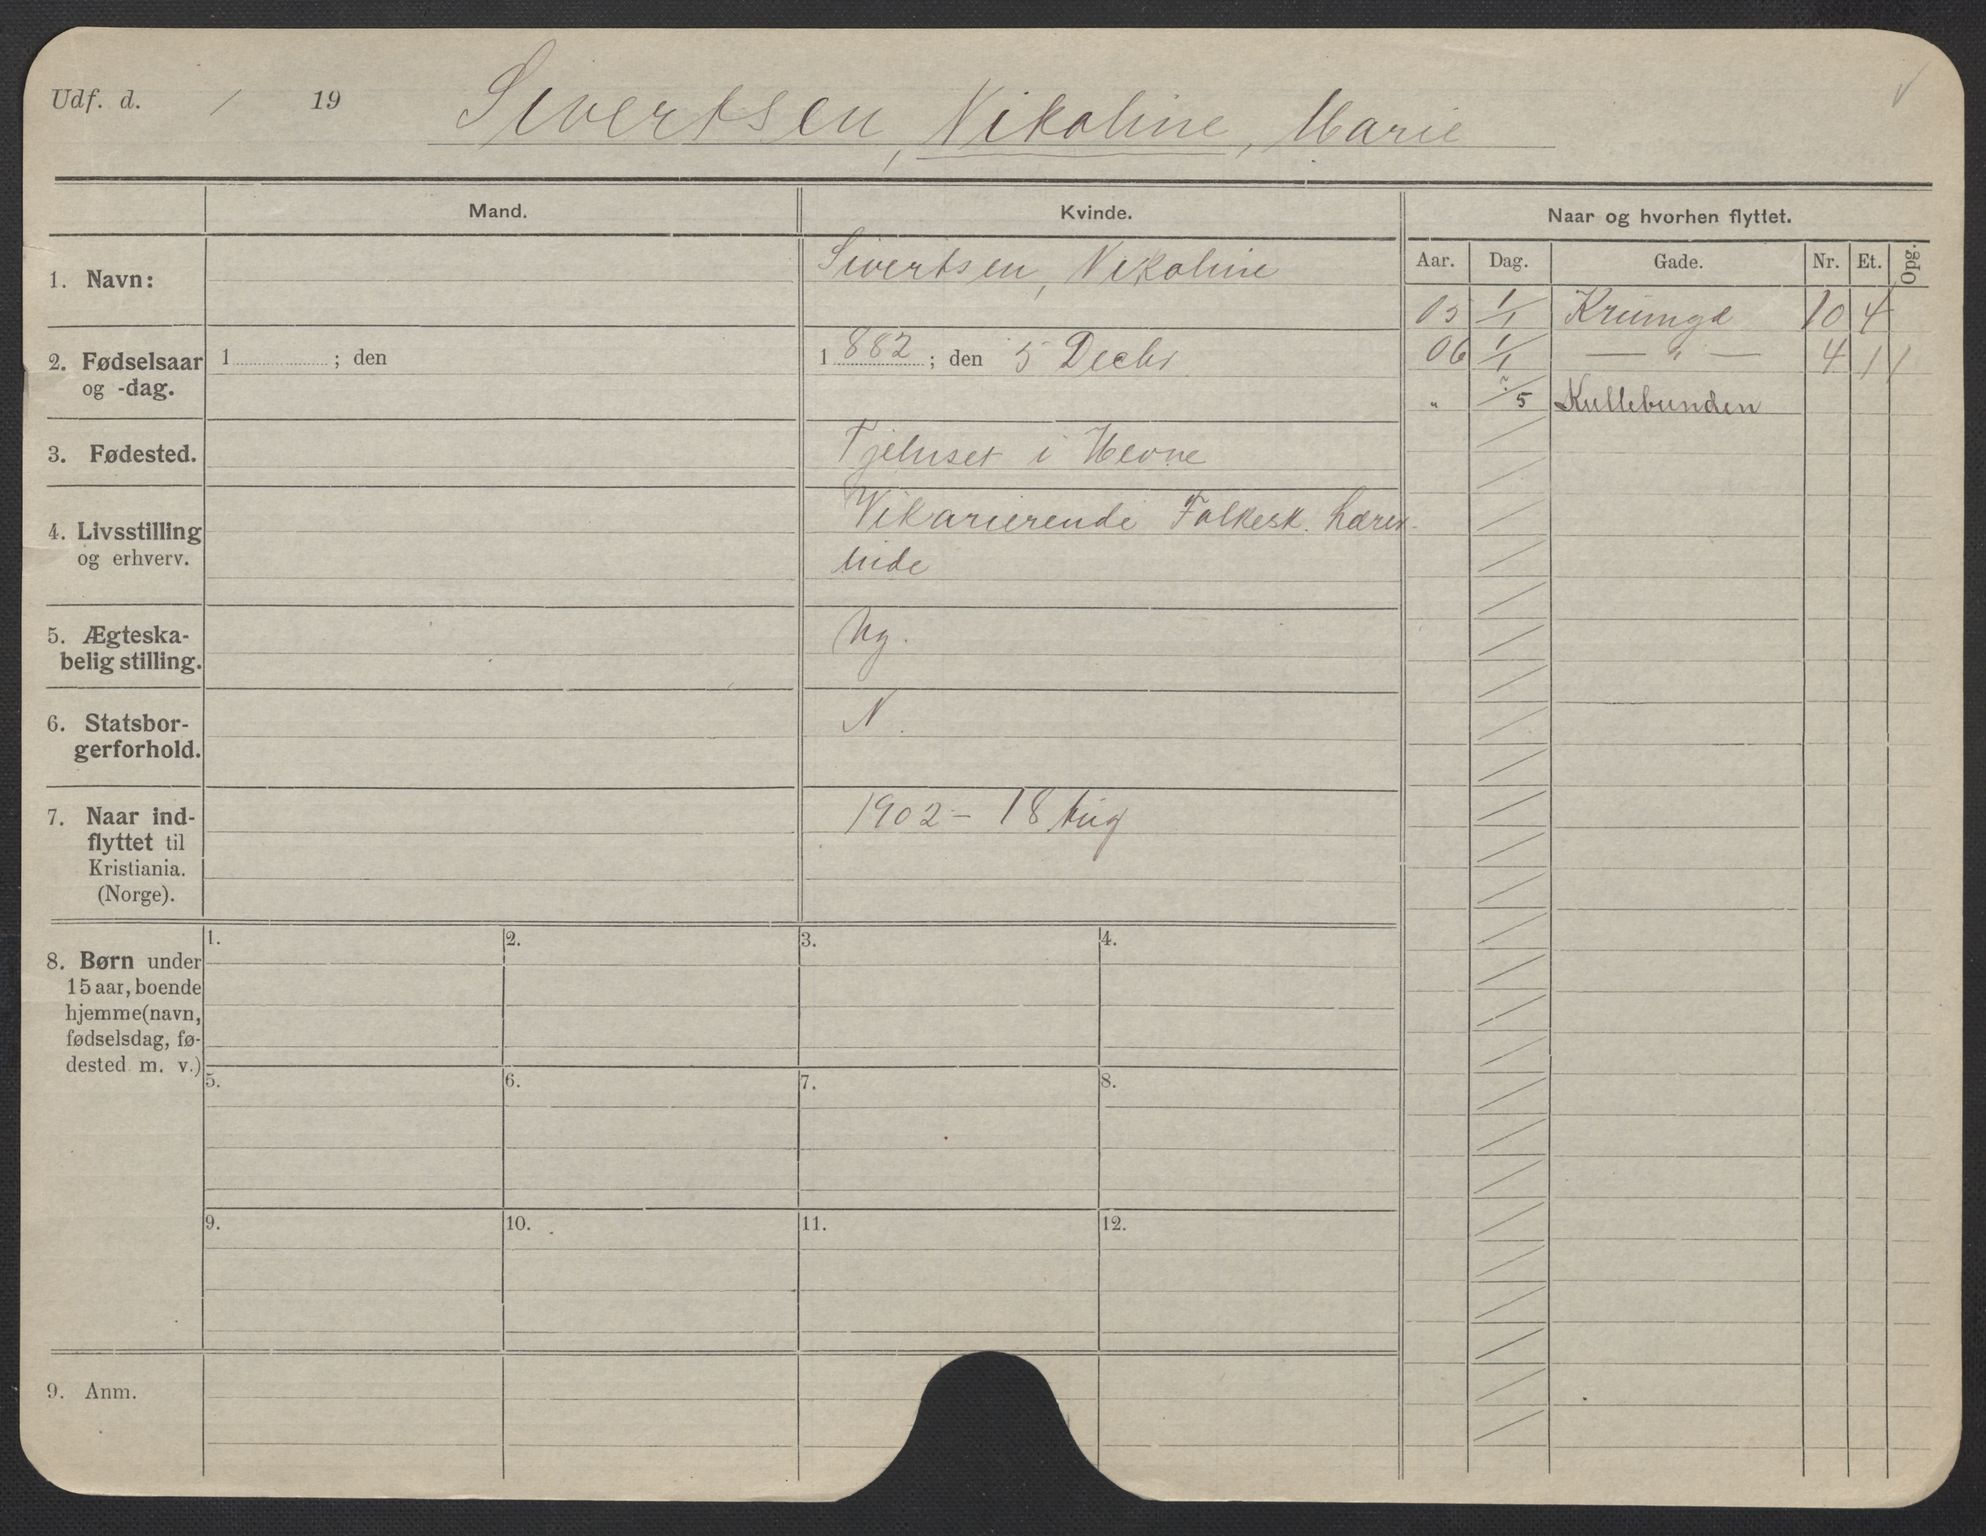 Udf. d. / 19 Sivertsen, Nikoline, Marie
Mand. Kvinde. Naar og hvorhen flyttet.
Aar. Dag. Gade. Nr. Et. Opg.
1. Navn: Sivertsen, Nikoline
05 1/1 Krumgd 10 4
2. Fødselsaar og -dag. 1 ; den 1 882 ; den 5 Decbr
06 1/1 — " — 4 1 /
" ?/5 Kullebunden
3. Fødested. i Hevne
4. Livsstilling og erhverv. Vikarierende Folkesk. Lærer-
inde
5. Ægteska-
belig stilling. Ug.
6. Statsbor-
gerforhold. N.
7. Naar ind-
flyttet til
Kristiania.
(Norge). 1902 - 18 Aug
8. Børn under
15 aar, boende
hjemme (navn,
fødselsdag, fø-
dested m. v.)
1. 2. 3. 4.
5. 6. 7. 8.
9. 10. 11. 12.
9. Anm.